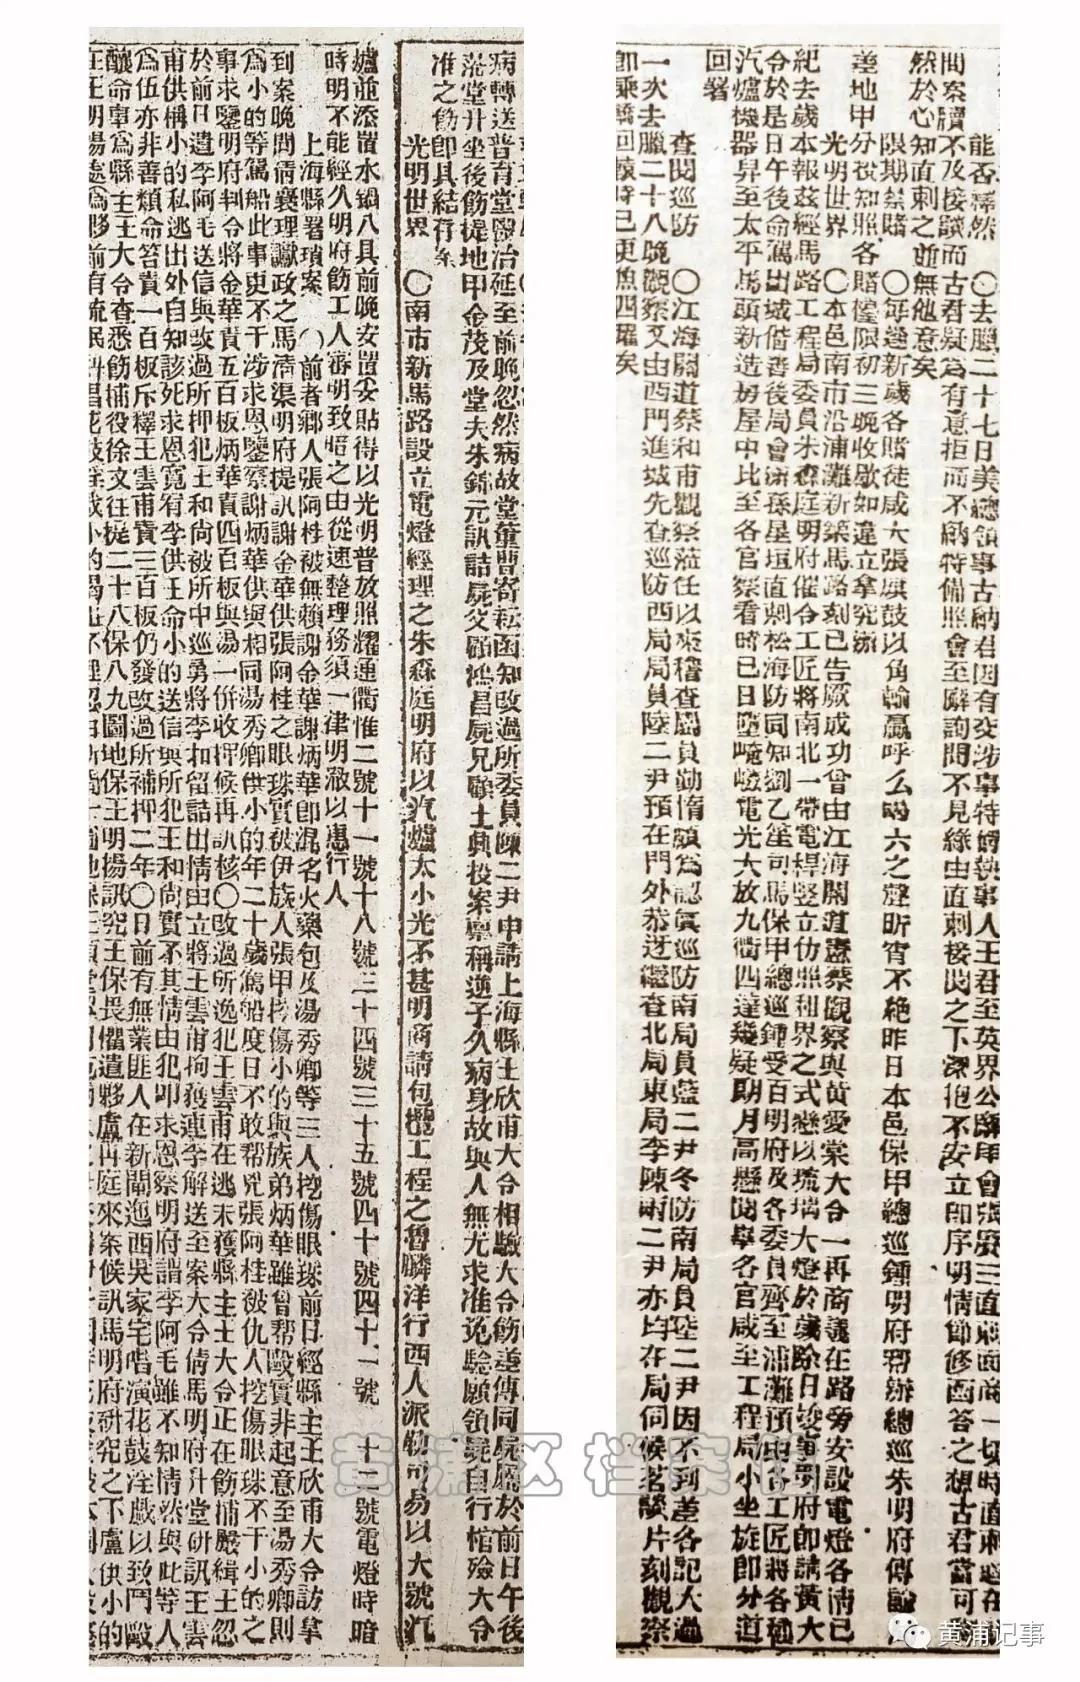 能否釋然　〇去臘二十七日美總領事古納君因有交涉事特婦執事人王君至英界公廨
問察牘不及接談而古君疑爲有意拒而不納特備照會至廨詢問不見緣由直刺接閱之下深抱不安立卽序明情節修函答之想古君當可
然於心知直刺之並無他意矣
限期禁賭　〇每逢新歲各賭徒咸大張旗鼓以角輸贏呼么喝六之聲昕宵不絕昨日本邑保甲總巡鍾明府帮辦總巡朱明府傳諭
差地甲分投知照各賭檯限初三晚收歇如違立拿究辦
光明世界　〇本邑南市沿浦灘新築馬路刻已告厥成功曾由江海關道蔡觀察與黃愛棠大令一再商議在路旁安設電燈各情已
紀去歲本報茲經馬路工程局委員朱森庭明府催令工匠將南北一帶電桿竪立仿照租界之式戀以琉璃大燈於歲除日竣事明府卽請黃大
令於是日午後命駕出城偕善後局會辦孫星垣直刺松海防同知劉乙笙司馬保甲總巡鍾受百明府及各委員齊至浦灘預由各工匠將各種
汽爐機器舁至太平馬頭新造房屋中比至各官察看時已日墜崦嵫電光大放九衢四達幾疑明月高懸閱畢各官咸至工程局小坐旋卽分道
回署
查閱巡防　〇江海關道蔡和甫觀察蒞任以來稽查團員勤惰頗爲認眞巡防南局員藍二尹冬防南局員陸二尹因不到差各記大過
一次去臘二十八晚觀察又由西門進城先查巡防西局局員陸二尹預在門外恭迓繼查北局東局李陳兩二尹亦均在局伺候茗談片刻觀察
卽乘輿回轅時已更魚四躍矣
病轉送普育堂醫治延至前晚忽然病故堂董曹寄耘函知改過所委員陳二尹申請上海縣王欣甫大令相驗大令飭差傳同屍屬於前日午後
蒞堂升坐後飭提地甲金茂及堂夫朱錦元訊詰屍父顧鴻昌屍兄顧士興投案稟稱逆子久病身故與人無尤求准免驗願領屍自行棺殮大令
准之飭卽具結存案
光明世界　〇南市新馬路設立電燈經理之朱森庭明府以汽爐太小光不甚明商請包攬工程之魯麟洋行西人派勒可易以大號汽
爐並添置水鍋八具前晚安置妥貼得以光明普放照耀通衢惟二號十一號十八號三十四號三十五號四十號四十一號　十二號電燈時暗
時明不能經久明府飭工人審明致暗之由從速整理務須一律明澈以惠行人
上海縣署瑣案　〇前者鄉人張阿桂被無賴謝金華謝炳華卽混名火藥包及湯秀卿等三人挖傷眼珠前日經縣主王欣甫大令訪拿
到案晚間倩襄理讞政之馬濟渠明府提訊謝金華供張阿桂之眼珠實被伊族人張甲挖傷小的與族弟炳華雖曾帮毆實非起意至湯秀卿則
爲小的等駕船此事更不干涉求恩鑒察謝炳華供與相同湯秀卿供小的年二十歲駕船度日不敢帮兇張阿桂被仇人挖傷眼珠不干小的之
事求鑒明府判令將金華責五百板炳華責四百板與湯一併收押候再訊核〇改過所逸犯王雲甫在逃未獲縣主王大令正在飭捕嚴緝王忽
於前日遣李阿毛送信與改過所押犯王和尚被所中巡勇將李扣留詰出情由立將王雲甫拘獲連李解送至案大令倩馬明府升堂研訊王雲
甫供稱小的私逃出外自知該死求恩寬宥李供王命小的送信與所犯王和尚實不其情由犯叩求恩察明府謂李阿毛雖不知情然與此等人
爲伍亦非善類命笞責一百板斥釋王雲甫責三百板仍發改過所補押二年〇日前有無業匪人在新閘迤西吳家宅唱演花鼓淫戲以致鬥毆
釀命事爲縣主王大令查悉飭捕役徐文往提二十八保八九圖地保王明揚訊究王保畏懼遣夥盧再庭來案候訊馬明府研究之下盧供小的
黄浦区档案馆
黄浦记事